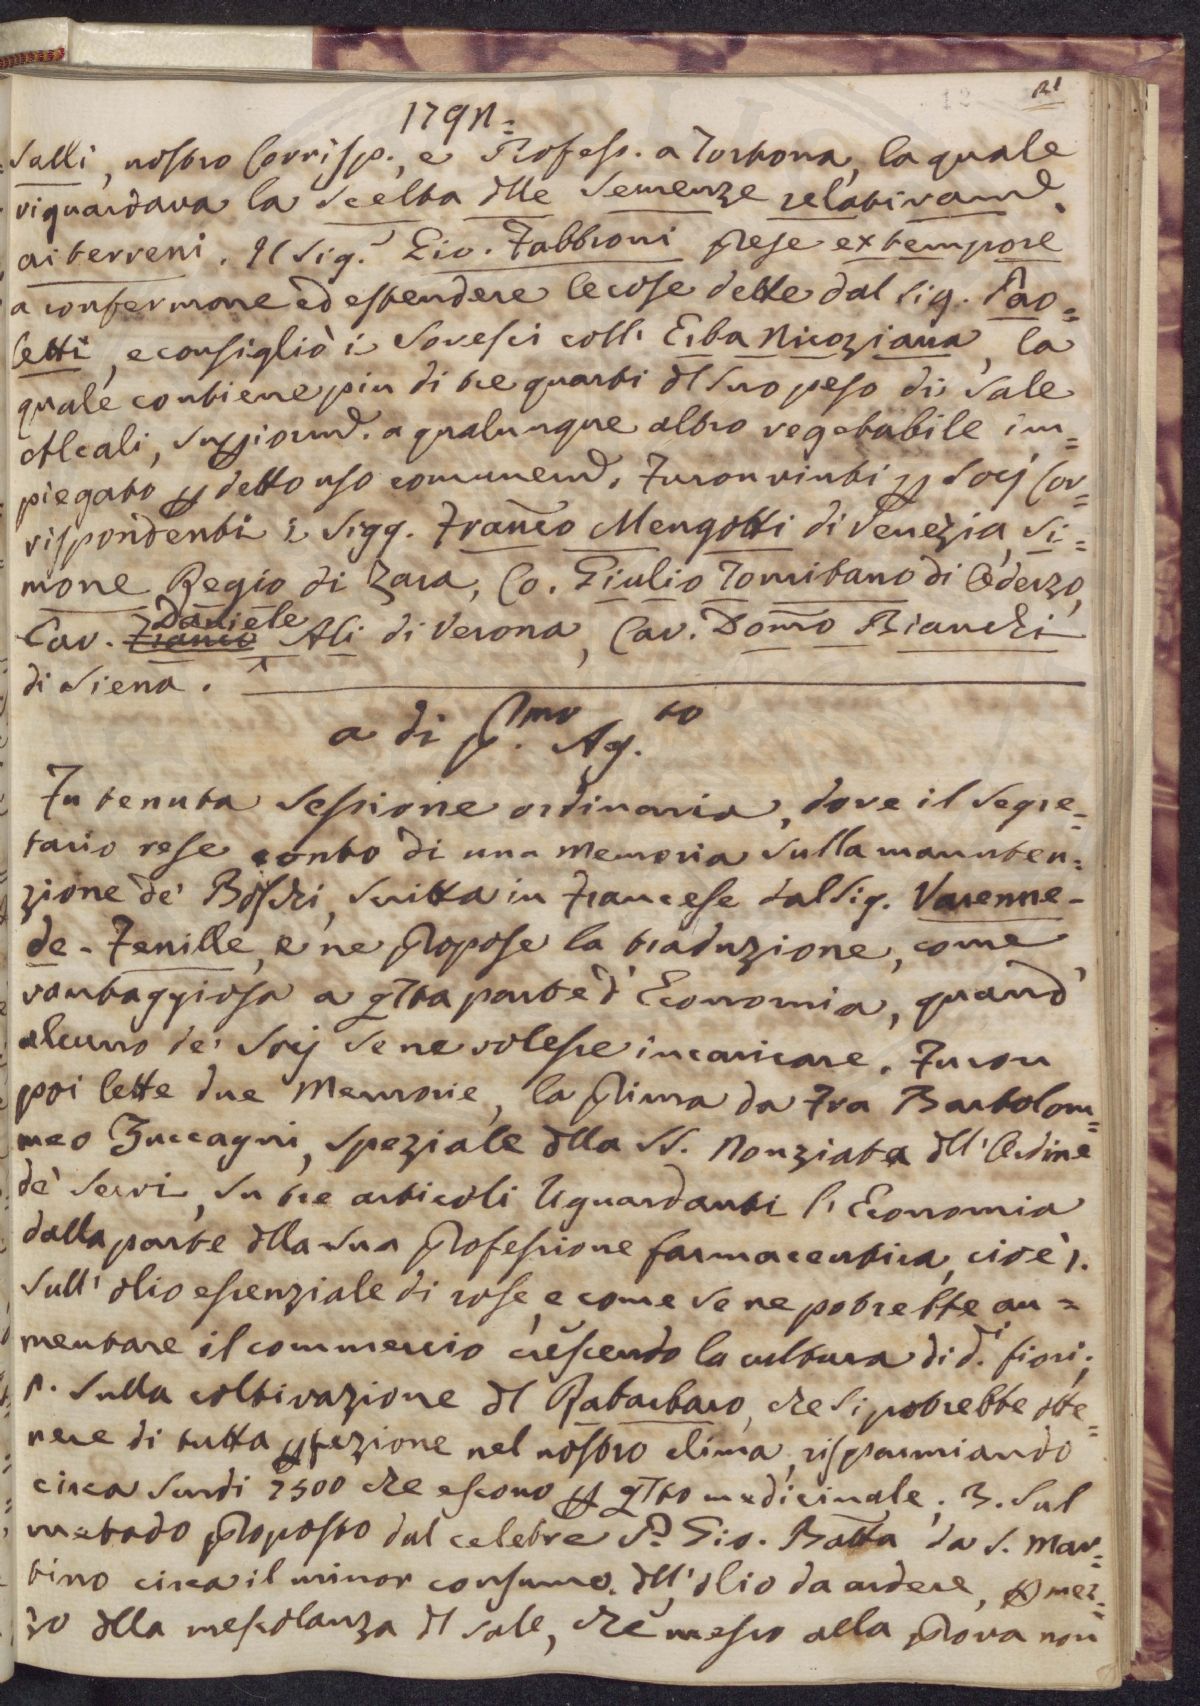 21
1792=
salli, nostro Corrisp., e Profess. a Tortona, la quale
riguardava la scelta dlle semenze relativamd.e
ai terreni. Il Sig. Gio. Fabbroni prese extempore
a confermare ed estendere le cose dette dal Sig. Pao=
letti, e consigliò i sovesci coll' Erba Nicoziana, la
quale contiene più di tre quarti dl suo peso di sale
Alcali, superiormd. a qualunque altro vegetabile im=
piegato p detto uso comunemd. Furon vinti p Socj Cor=
rispondenti i Sigg. Franco Mengotti di Venezia, Si=
mone Regio di Zara, Co. Giulio Tomitano di Oderzo,
Daniele
Cav. Franco Ali di Verona, Cav. Domco Bianchi
di Siena.
a di Pmo Ag.to
Fu tenuta sessione ordinaria, dove il Segre=
tario rese conto di una memoria sulla manuten=
zione de' Boschi, scritta in Francese dal Sig. Varenne-
de-Fenille, e ne propose la traduzione, come
vantaggiosa a qsta parte d' Economia, quand'
alcuno de' Socj se ne volesse incaricare. Furon
poi lette due Memorie, la prima da Fra Bartolom=
meo Zuccagni, speziale dlla SS. Nonziata dll' Ordine
de' Servi, su tre articoli riguardanti l'Economia
dalla parte dlla sua professione farmaceutica, cioè 1.
sull' olio essenziale di rose, e come se ne potrebbe au=
mentare il commercio crescendo la cultura di d.i fiori;
2. sulla coltivazione dl Rabarbaro, che si potrebbe otte=
nere di tutta pfezione nel nostro clima, risparmiando
circa scudi 2500 che escono p qsto medicinale; 3. sul
metodo proposto dal celebre P. Gio. Batta da S. Mar=
tino circa il minor consumo dll' olio da ardere, p mez=
zo dlla mescolanza dl sale, che messo alla prova non